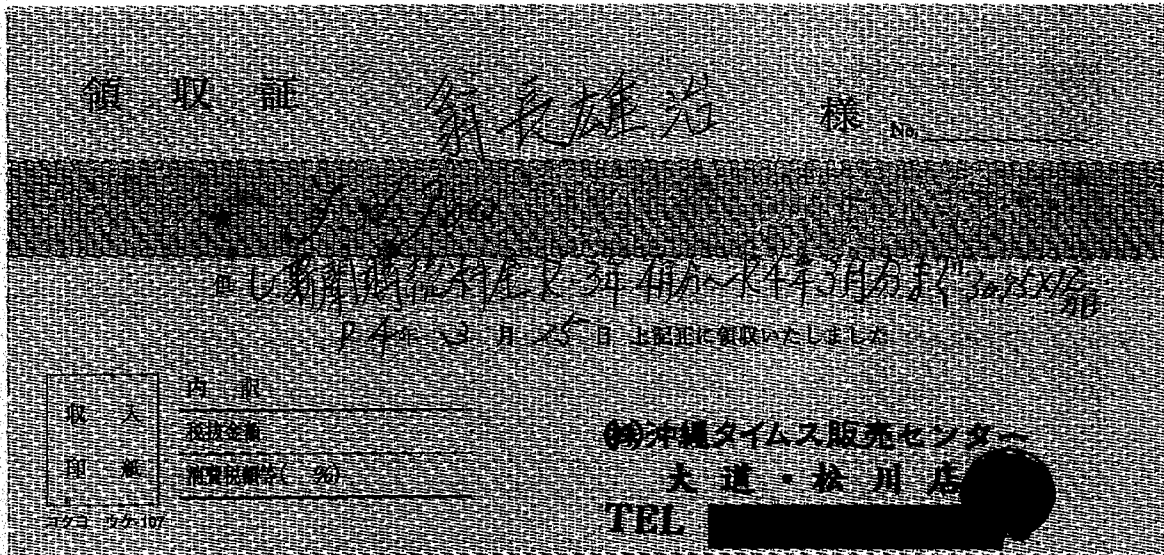 領収証 翁長雄治 様 No.
但し 新聞購読料として R3年4月分〜R4年3月分まで
R4年 3月 25日 上記正に領収いたしました
収入
印紙
内訳
税抜金額
消費税額等( %)
コクヨ ウケ-107
㈱沖縄タイムス販売センター
大道・松川店
TEL